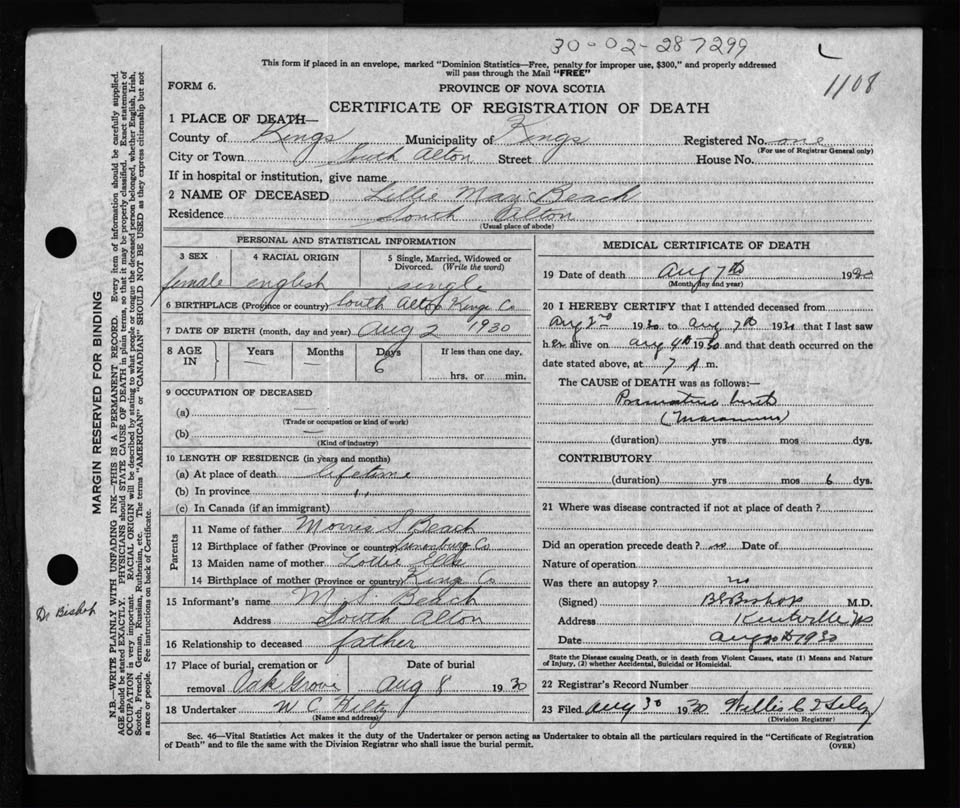 30-02-287299
L
1108
This form if placed in an envelope, marked "Dominion Statistics—Free, penalty for improper use, $300," and properly addressed
will pass through the Mail "FREE"
FORM 6.
PROVINCE OF NOVA SCOTIA
CERTIFICATE OF REGISTRATION OF DEATH
1 PLACE OF DEATH—
County of Kings Municipality of Kings Registered No. one
(For use of Registrar General only)
City or Town South Alton Street House No.
If in hospital or institution, give name
2 NAME OF DECEASED Lillie May Beach
Residence South Alton
(Usual place of abode)
PERSONAL AND STATISTICAL INFORMATION
3 SEX 4 RACIAL ORIGIN 5 Single, Married, Widowed or Divorced. (Write the word)
female english single
6 BIRTHPLACE (Province or country) South Alton Kings Co
7 DATE OF BIRTH (month, day and year) Aug 2 1930
8 AGE IN Years Months Days If less than one day,
— — 6 hrs. or min.
9 OCCUPATION OF DECEASED
(a) —
(Trade or occupation or kind of work)
(b) —
(Kind of industry)
10 LENGTH OF RESIDENCE (in years and months)
(a) At place of death lifetime
(b) In province ,,
(c) In Canada (if an immigrant)
Parents
11 Name of father Morris S Beach
12 Birthplace of father (Province or country) Lunenburg Co
13 Maiden name of mother Lottie
14 Birthplace of mother (Province or country) Kings Co
15 Informant's name M. S Beach
Address South Alton
16 Relationship to deceased father
17 Place of burial, cremation or removal Oak Grove Date of burial Aug 8 1930
18 Undertaker W C Hiltz
(Name and address)
MEDICAL CERTIFICATE OF DEATH
19 Date of death Aug 7th 1930
(Month, day and year)
20 I HEREBY CERTIFY that I attended deceased from
Aug 2nd 1930 to Aug 7th 1930 that I last saw
her alive on Aug 4th 1930 and that death occurred on the
date stated above, at 7 A m.
The CAUSE of DEATH was as follows:—
Premature birth
(Marasmus)
(duration) yrs mos dys.
CONTRIBUTORY
(duration) yrs mos 6 dys.
21 Where was disease contracted if not at place of death?
Did an operation precede death? no Date of
Nature of operation
Was there an autopsy? no
(Signed) B E Bishop M.D.
Address Kentville NS
Date 1930
State the Disease causing Death, or in death from Violent Causes, state (1) Means and Nature
of Injury, (2) whether Accidental, Suicidal or Homicidal.
22 Registrar's Record Number
23 Filed Aug 30 1930 Willis C
(Division Registrar)
Sec. 46—Vital Statistics Act makes it the duty of the Undertaker or person acting as Undertaker to obtain all the particulars required in the "Certificate of Registration
of Death" and to file the same with the Division Registrar who shall issue the burial permit.
(OVER)
MARGIN RESERVED FOR BINDING
N.B.—WRITE PLAINLY WITH UNFADING INK—THIS IS A PERMANENT RECORD. Every item of information should be carefully supplied.
AGE should be stated EXACTLY. PHYSICIANS should STATE CAUSE OF DEATH in plain terms, so that it may be properly classified. Exact statement of
OCCUPATION is very important. RACIAL ORIGIN will be described by stating to what people or tongue the deceased person belonged, whether English, Irish,
Scotch, French, German, Russian, Ruthenian, etc. The terms "AMERICAN" or "CANADIAN" SHOULD NOT BE USED as they express citizenship but not
a race or people. See instructions on back of Certificate.
Dr Bishop